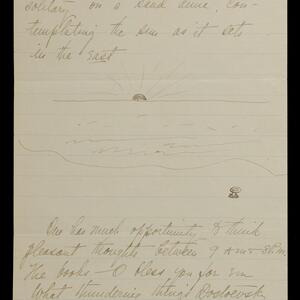 solitary, on a sand dune, con-
templating the sun as it sets
in the east
One has much opportunity to think
pleasant thoughts between 9 A.M & 3 P.M.
The books — O bless you for 'em
What thundering things Dostoevsk